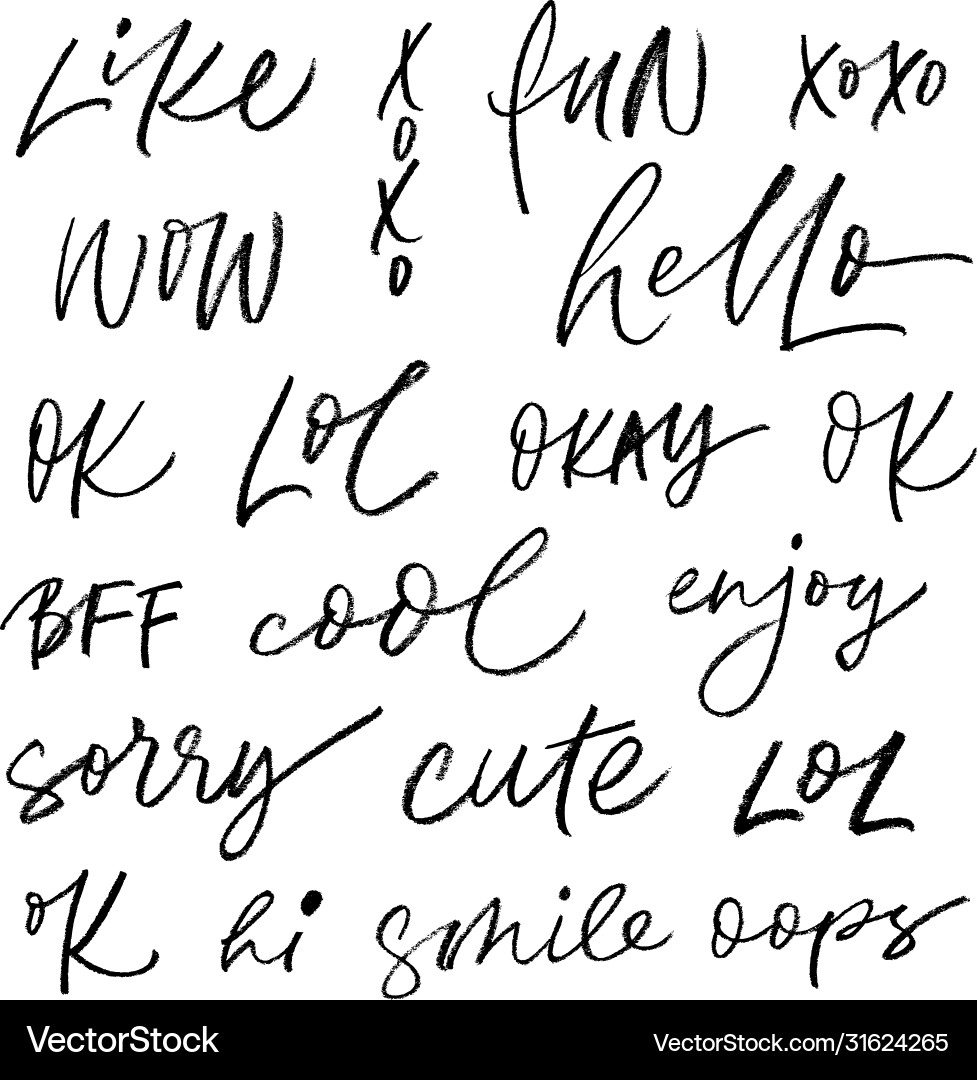 Like xoxo fun xoxo
wow hello
OK LOL OKAY OK
BFF cool enjoy
sorry cute LOL
OK hi smile oops
VectorStock VectorStock.com/31624265